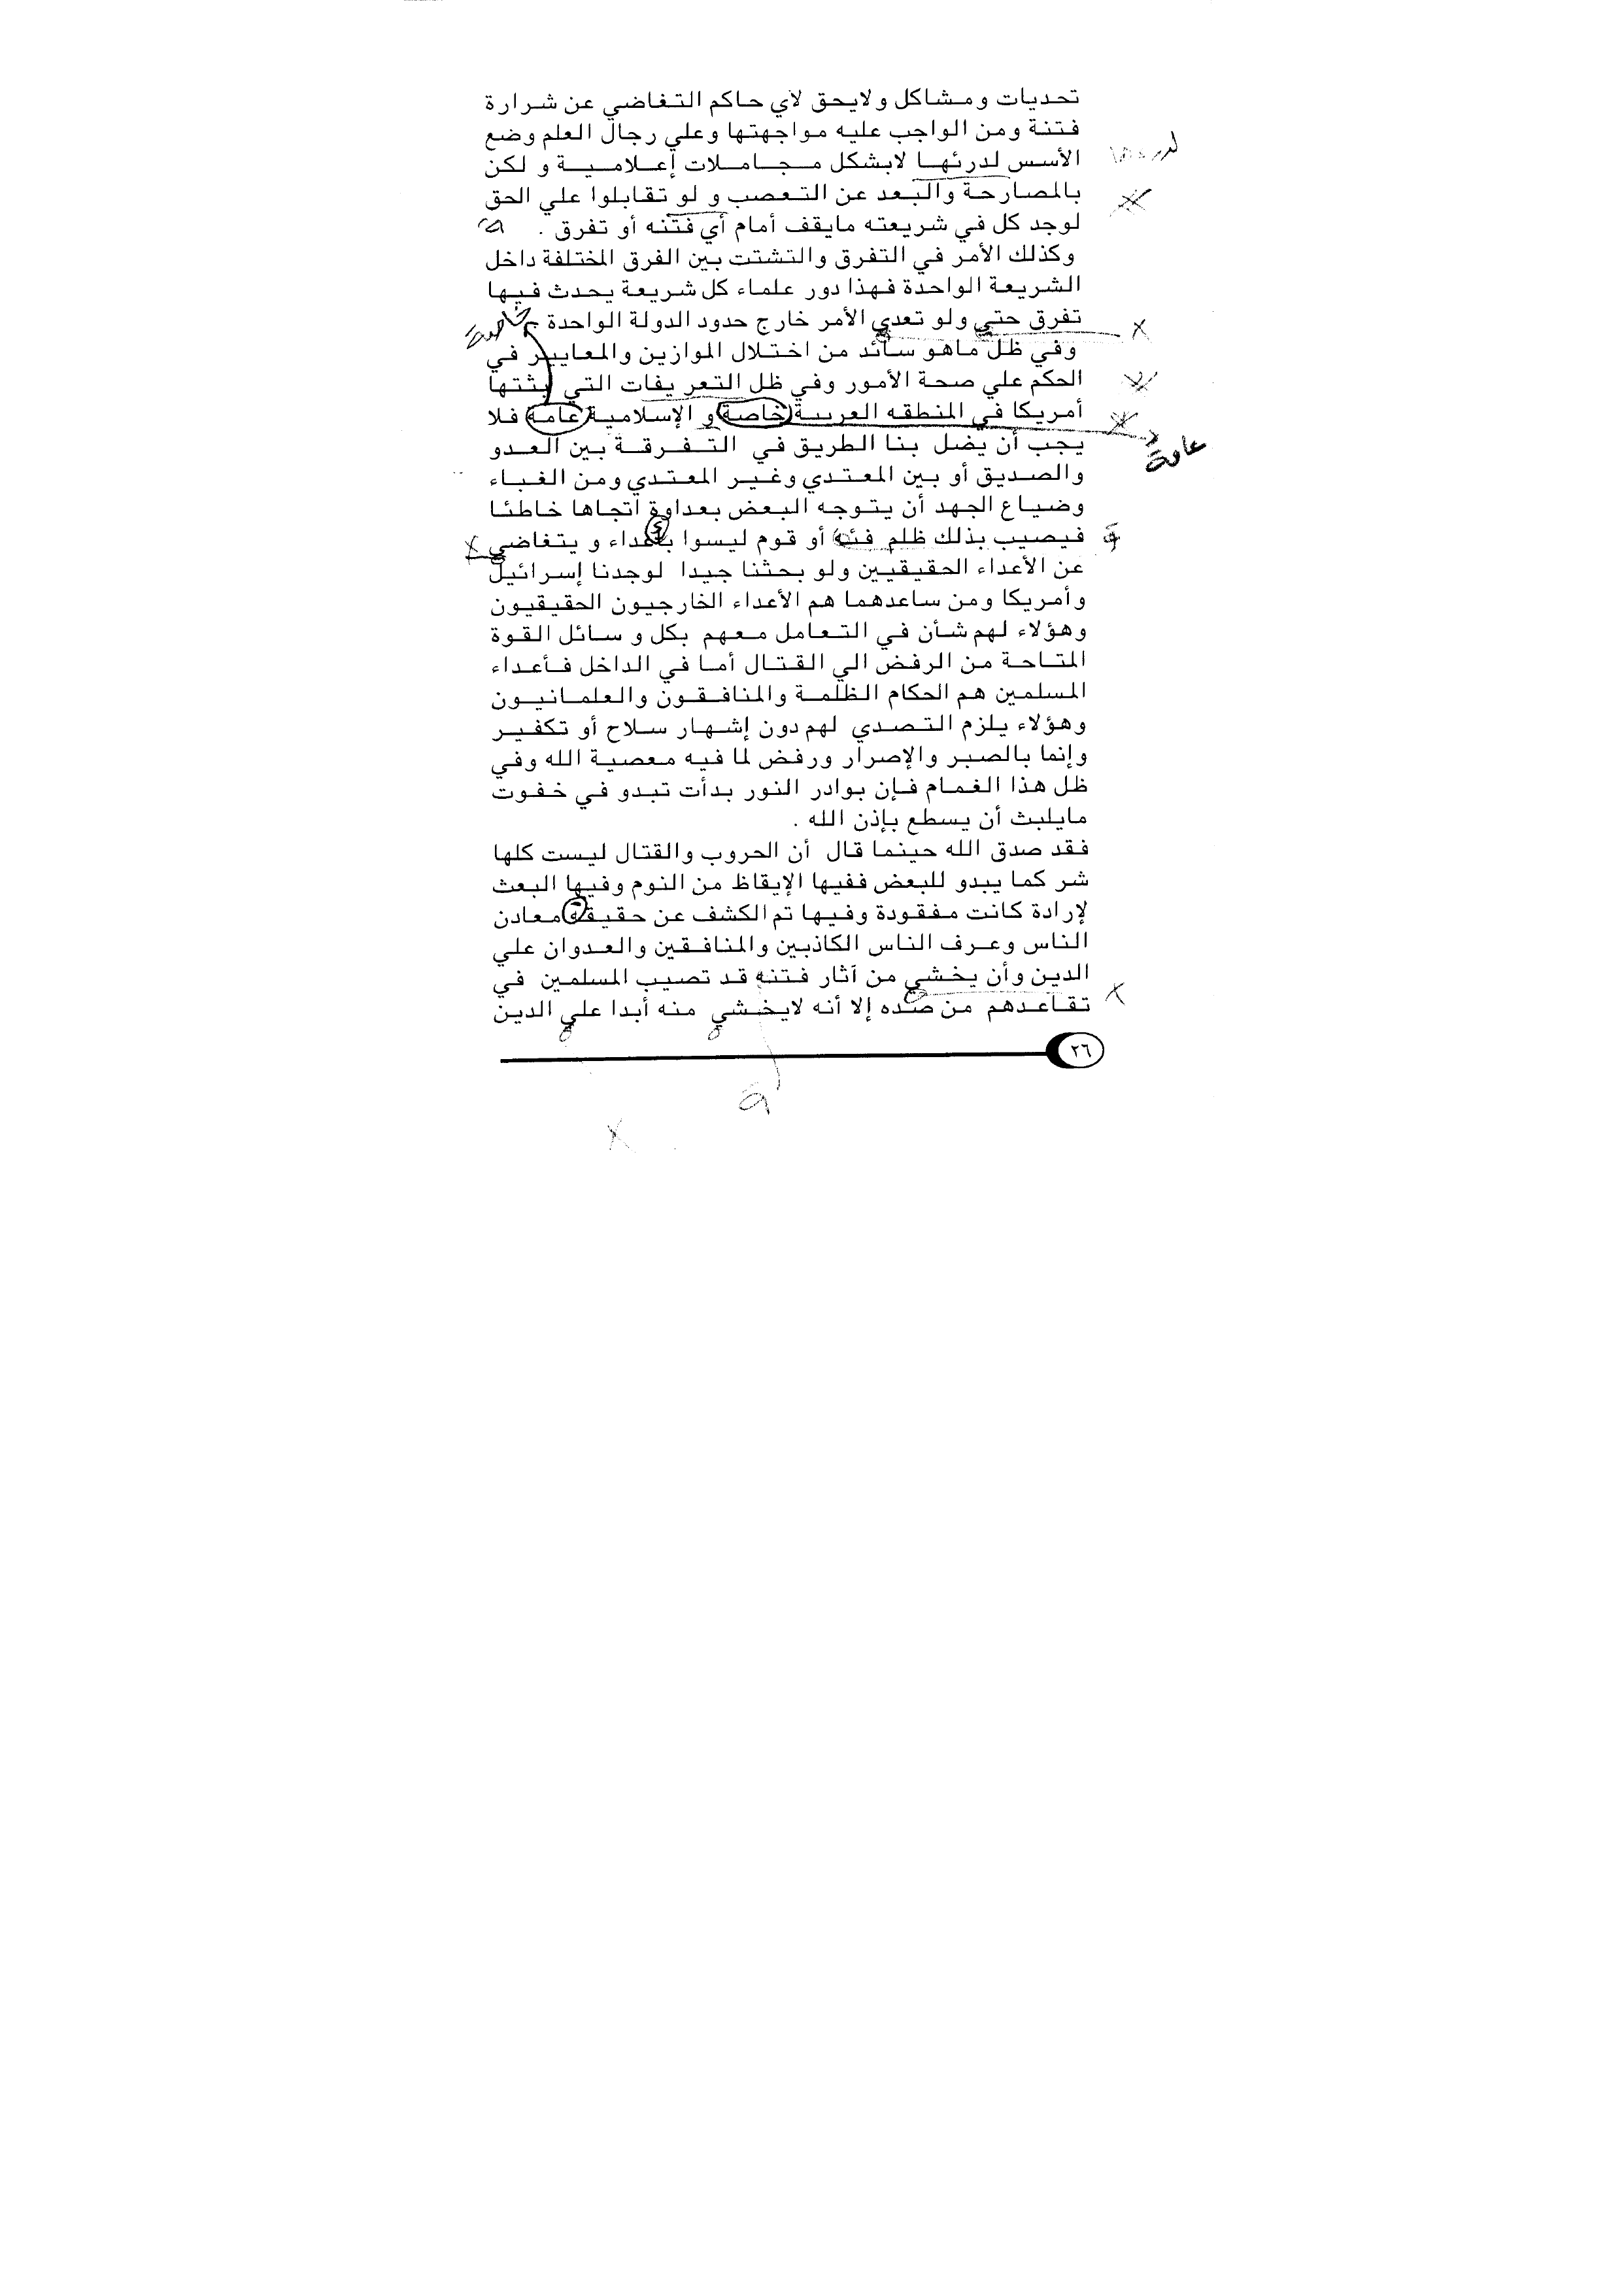 تحديات ومشاكل ولايحق لأي حاكم التغاضي عن شرارة
فتنة ومن الواجب عليه مواجهتها وعلي رجال العلم وضع
الأسس لدرئها لابشكل مجاملات إعلامية و لكن
بالمصارحة والبعد عن التعصب و لو تقابلوا علي الحق
لوجد كل في شريعته مايقف أمام أي فتنه أو تفرق .
وكذلك الأمر في التفرق والتشتت بين الفرق المختلفة داخل
الشريعة الواحدة فهذا دور علماء كل شريعة يحدث فيها
تفرق حتي ولو تعدي الأمر خارج حدود الدولة الواحدة
وفي ظل ماهو سائد من اختلال الموازين والمعايير في
الحكم علي صحة الأمور وفي ظل التعريفات التي بثتها
أمريكا في المنطقه العربية خاصة و الإسلامية عامة فلا
يجب أن يضل بنا الطريق في التفرقة بين العدو
والصديق أو بين المعتدي وغير المعتدي ومن الغباء
وضياع الجهد أن يتوجه البعض بعداوة اتجاها خاطئا
فيصيب بذلك ظلم فئه أو قوم ليسوا بأعداء و يتغاضي
عن الأعداء الحقيقيين ولو بحثنا جيدا لوجدنا إسرائيل
وأمريكا ومن ساعدهما هم الأعداء الخارجيون الحقيقيون
وهؤلاء لهم شأن في التعامل معهم بكل و سائل القوة
المتاحة من الرفض الي القتال أما في الداخل فأعداء
المسلمين هم الحكام الظلمة والمنافقون والعلمانيون
وهؤلاء يلزم التصدي لهم دون إشهار سلاح أو تكفير
وإنما بالصبر والإصرار ورفض لما فيه معصية الله وفي
ظل هذا الغمام فإن بوادر النور بدأت تبدو في خفوت
مايلبث أن يسطع بإذن الله .
فقد صدق الله حينما قال أن الحروب والقتال ليست كلها
شر كما يبدو للبعض ففيها الإيقاظ من النوم وفيها البعث
لإرادة كانت مفقودة وفيها تم الكشف عن حقيقة معادن
الناس وعرف الناس الكاذبين والمنافقين والعدوان علي
الدين وأن يخشي من آثار فتنه قد تصيب المسلمين في
تقاعدهم من صده إلا أنه لايخشي منه أبدا علي الدين
٢٦